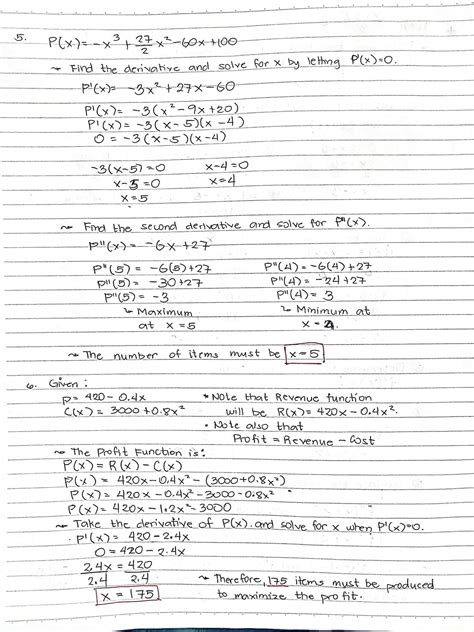 5. P(x) = -x³ + 27/2 x² - 60x + 100
~ Find the derivative and solve for x by letting P'(x)=0.
P'(x) = -3x² + 27x - 60
P'(x) = -3(x² - 9x + 20)
P'(x) = -3(x - 5)(x - 4)
0 = -3(x - 5)(x - 4)
-3(x-5) = 0 x-4 = 0
x-5 = 0 x = 4
x = 5
~ Find the second derivative and solve for P"(x).
P"(x) = -6x + 27
P"(5) = -6(5) + 27 P"(4) = -6(4) + 27
P"(5) = -30 + 27 P"(4) = -24 + 27
P"(5) = -3 P"(4) = 3
↳ Maximum ↳ Minimum at
at x = 5 x = 4.
~ The number of items must be x = 5
6. Given:
p = 420 - 0.4x * Note that Revenue function
C(x) = 3000 + 0.8x² will be R(x) = 420x - 0.4x².
• Note also that
Profit = Revenue - Cost
~ The Profit Function is:
P(x) = R(x) - C(x)
P(x) = 420x - 0.4x² - (3000 + 0.8x²)
P(x) = 420x - 0.4x² - 3000 - 0.8x²
P(x) = 420x - 1.2x² - 3000
~ Take the derivative of P(x) and solve for x when P'(x)=0.
P'(x) = 420 - 2.4x
0 = 420 - 2.4x
2.4x = 420
2.4 2.4 ~ Therefore, 175 items must be produced
x = 175 to maximize the profit.